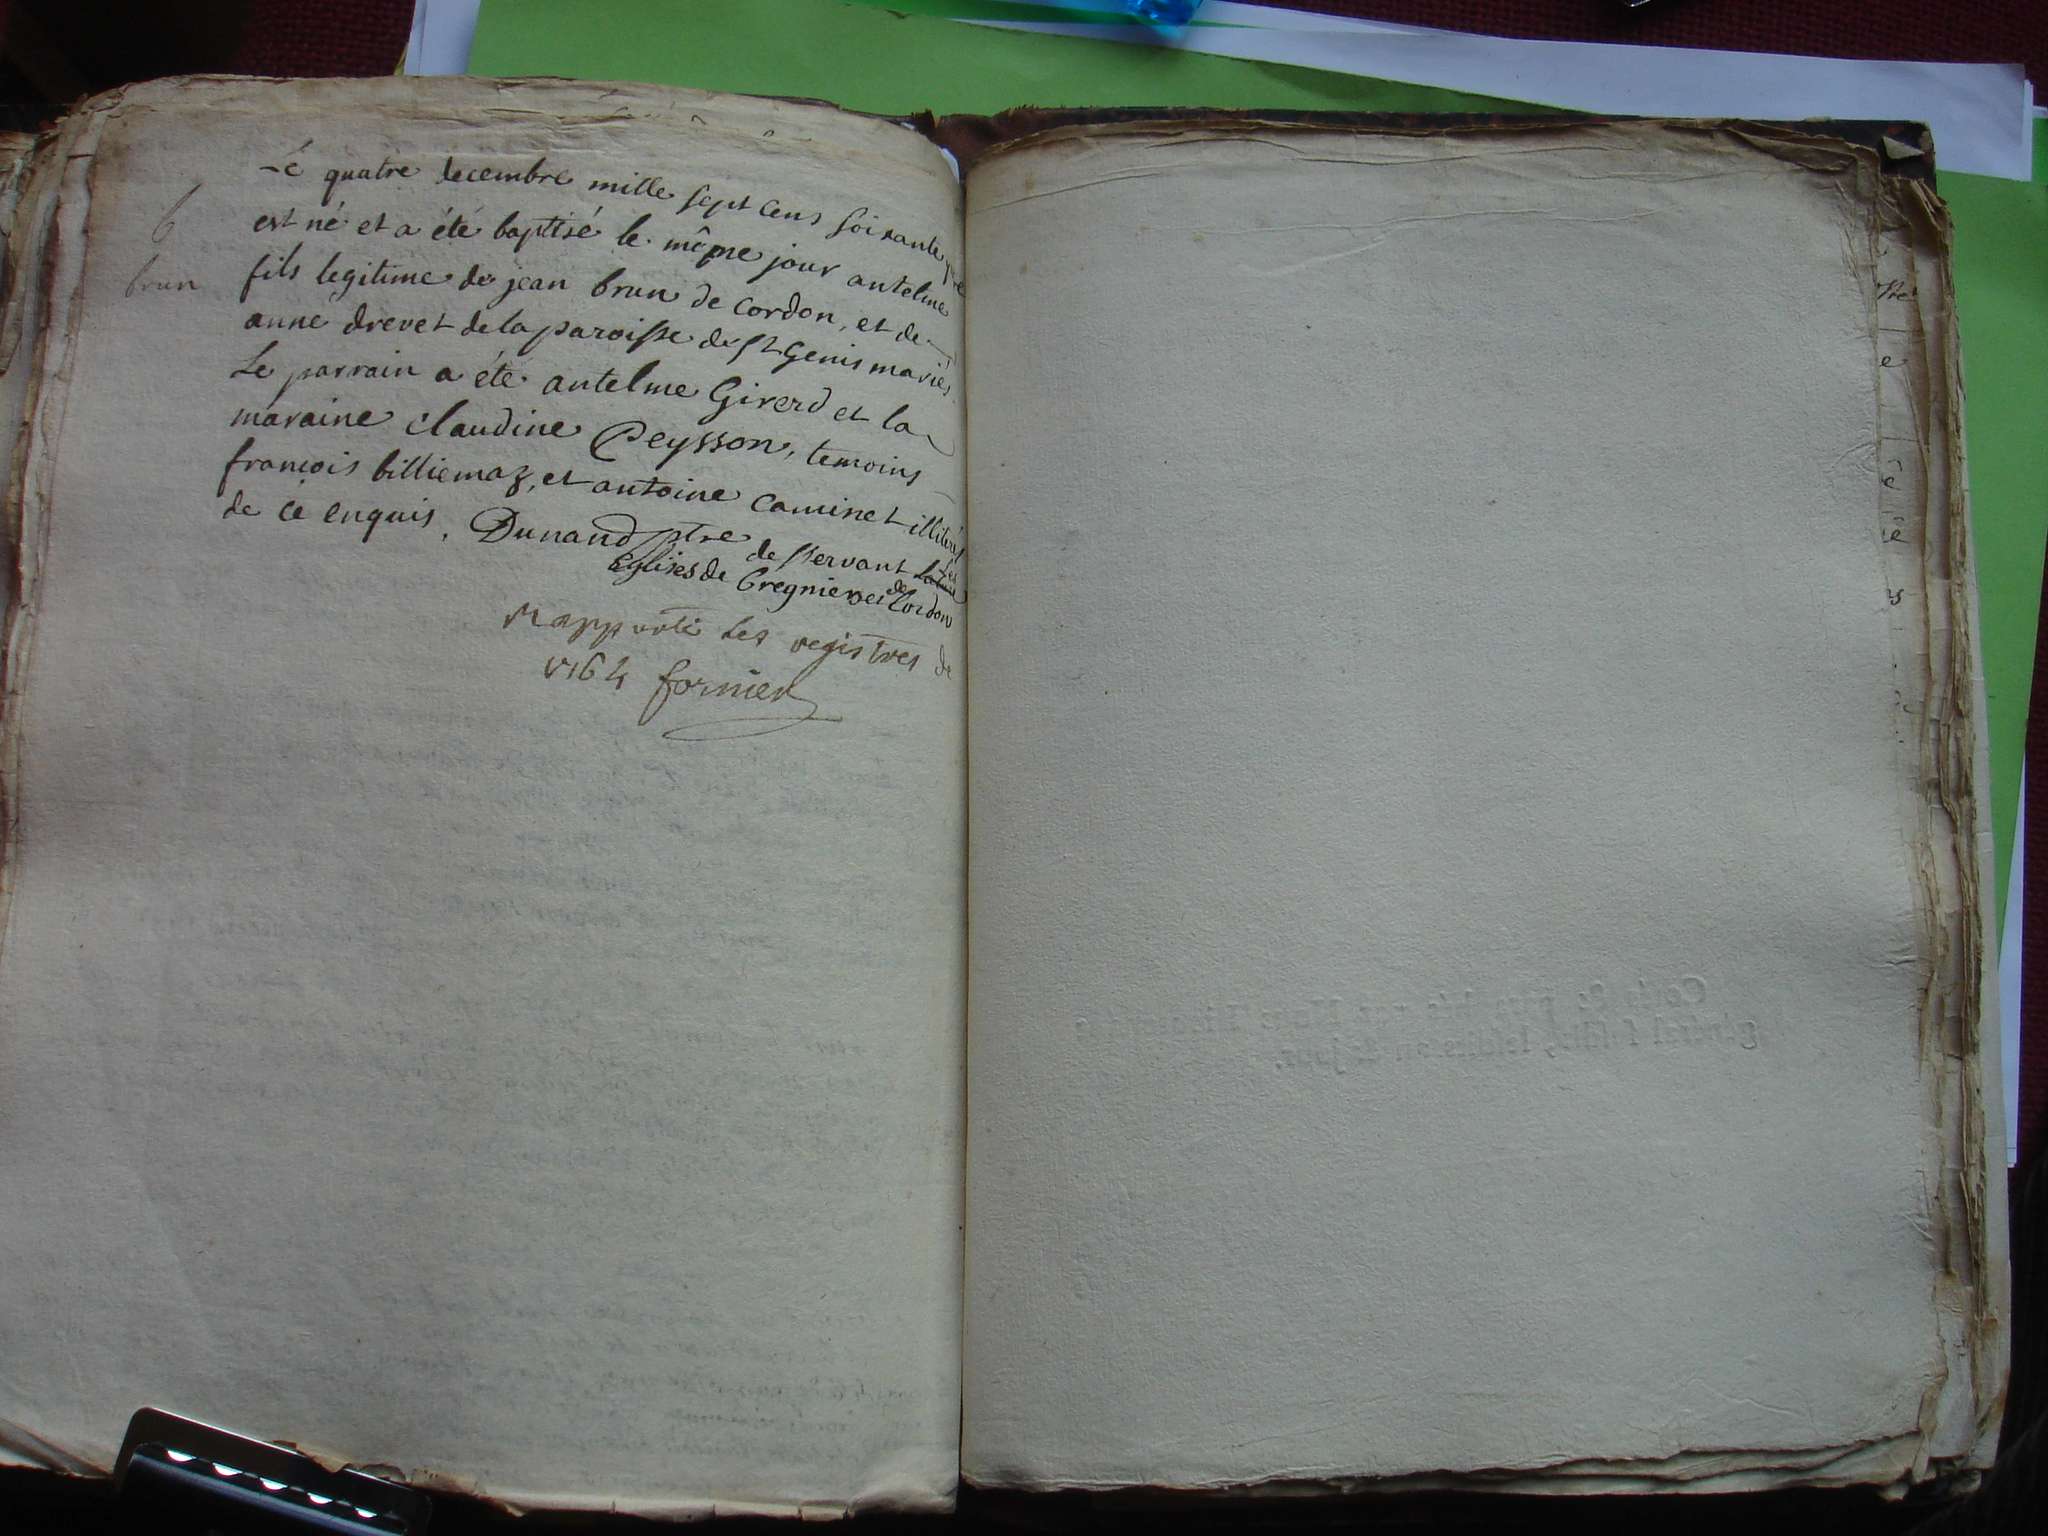 Le quatre decembre mille sept cens soixante
est né et a été baptisé le même jour antelme
6
brun
fils legitime de jean brun de cordon, et de
anne drevet de la paroisse de st Genis mariés.
Le parrain a été antelme Girerd et la
maraine claudine Peysson, temoins
francois billiemaz, et antoine caminet illiterés
de ce enquis. Dunand ptre
desservant les
Eglises de Bregnier et de Cordon
Rapporté les registres de
1764 fornier